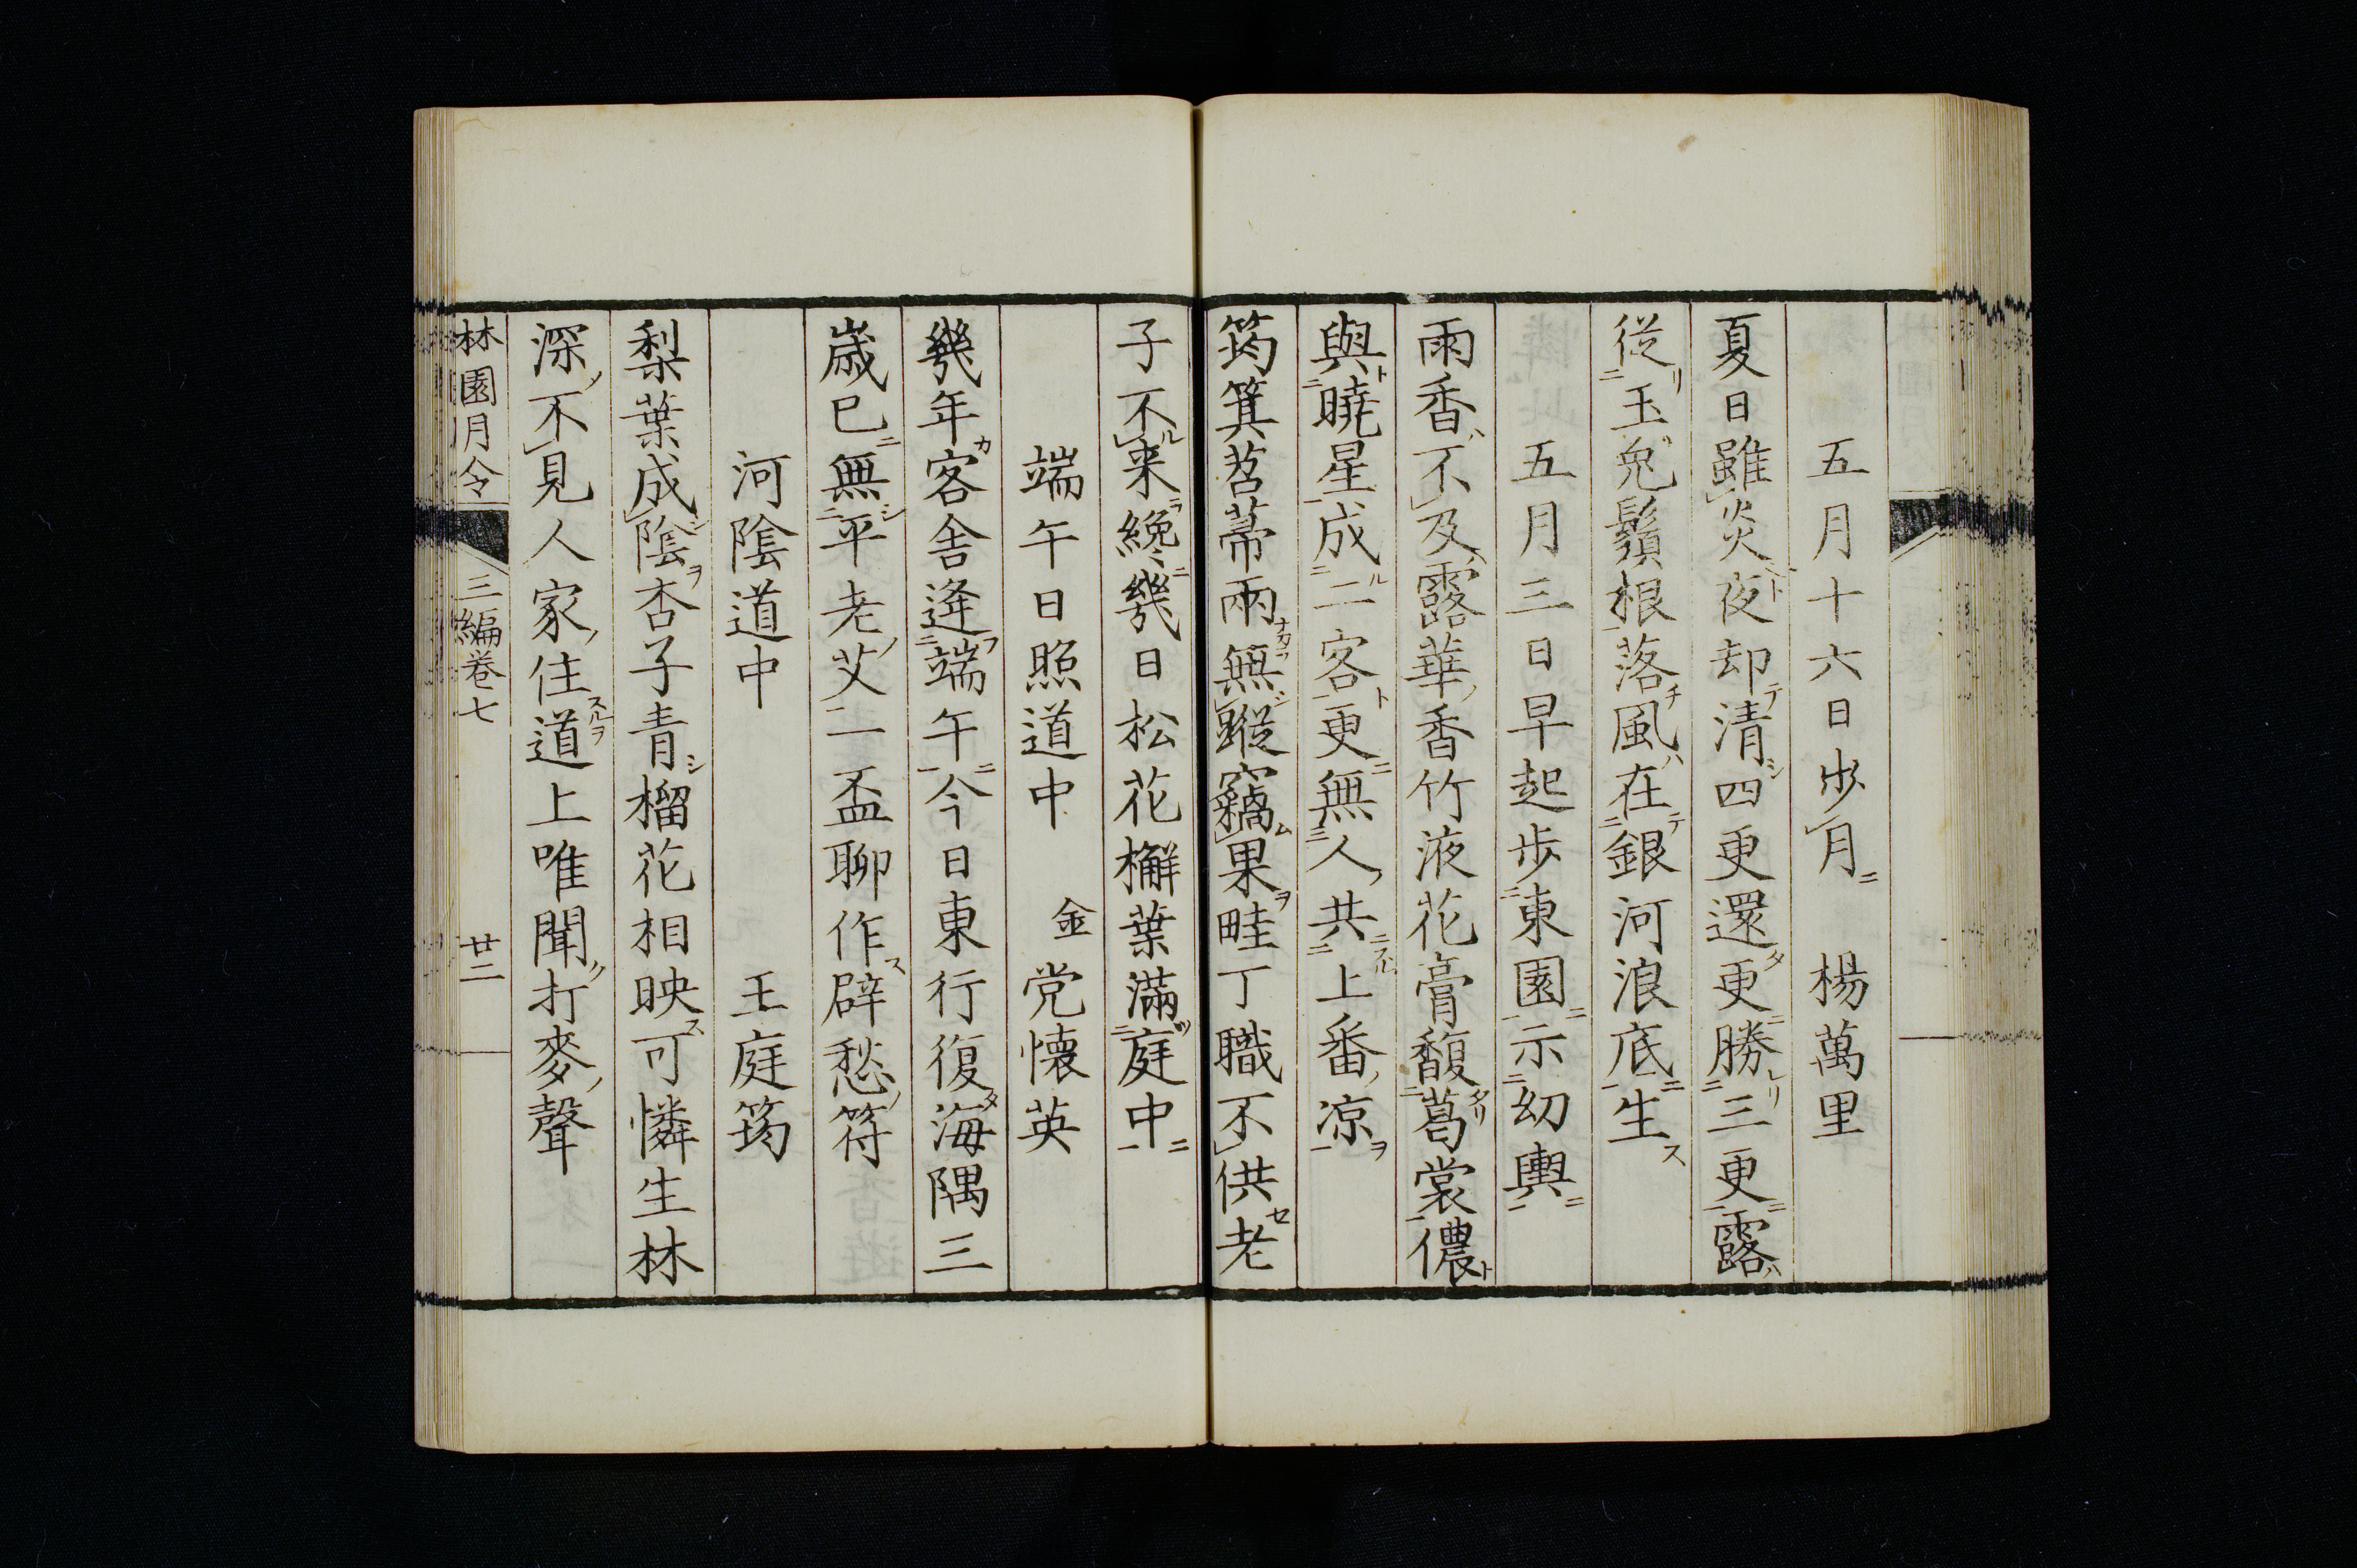 五月十六日步月　楊萬里
夏日雖炎夜却清四更還更勝三更露
從玉兔鬚根落風在銀河浪底生
五月三日早起步東園示幼輿
雨香不及露華香竹液花膏馥葛裳儂
與曉星成二客更無人共上番凉
筠箕苕帚兩無蹤竊果畦丁職不供老
子不来纔幾日松花檞葉滿庭中
端午日照道中　金党懷英
幾年客舍逢端午今日東行復海隅三
歳已無平老艾一盃聊作辟愁符
河陰道中　王庭筠
梨葉成陰杏子青榴花相映可憐生林
深不見人家住道上唯聞打麥聲
林園月令　三編卷七　廿二